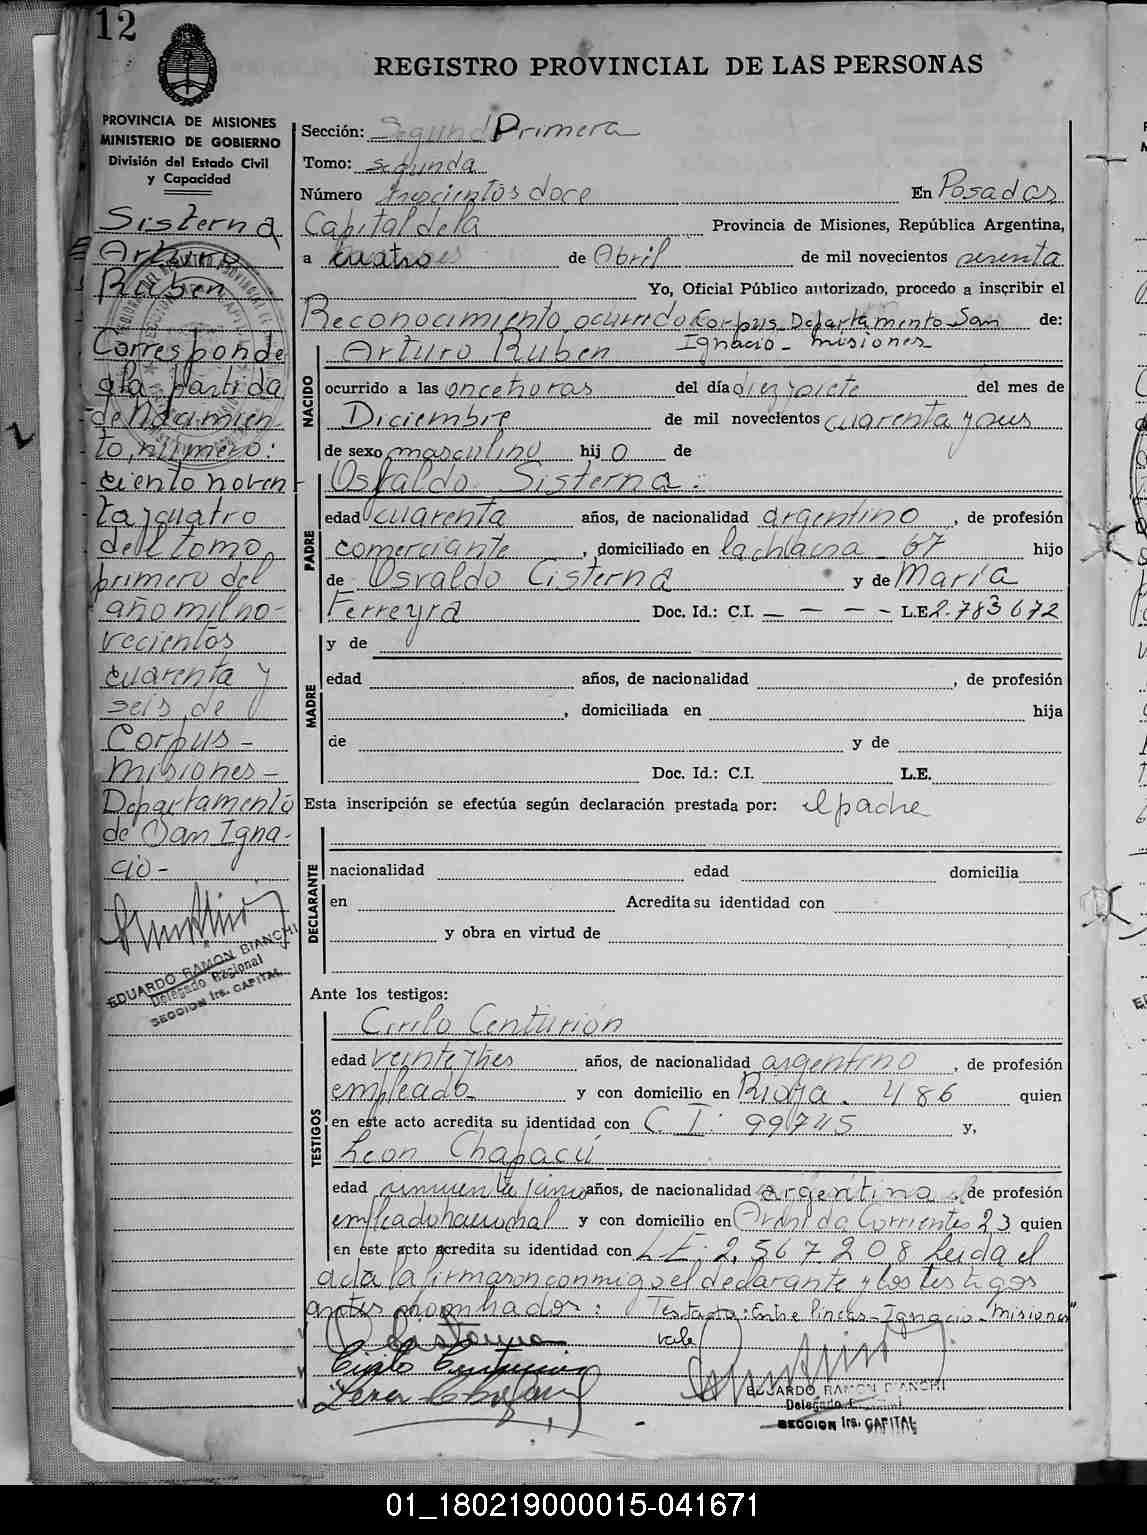 12
REGISTRO PROVINCIAL DE LAS PERSONAS
PROVINCIA DE MISIONES
MINISTERIO DE GOBIERNO
División del Estado Civil
y Capacidad
Sisterna
Arturo
Ruben
Corresponde
a la partida
de Nacimien-
to, número:
ciento noven
ta y cuatro
del tomo
primero del
año mil no-
vecientos
cuarenta y
seis de
Corpus-
Misiones-
Departamento
de San Igna-
cio-
EDUARDO RAMON BIANCHI
Delegado Regional
SECCION 1ra. CAPITAL
Sección: Segund Primera
Tomo: segunda
Número trescientos doce En Posadas
Capital de la Provincia de Misiones, República Argentina,
a cuatro de Abril de mil novecientos setenta
Yo, Oficial Público autorizado, procedo a inscribir el
Reconocimiento ocurrido Corpus Departamento San de:
Ignacio - Misiones
NACIDO
Arturo Ruben
ocurrido a las once horas del día diez y siete del mes de
Diciembre de mil novecientos cuarenta y seis
de sexo masculino hijo de
PADRE
Osvaldo Sisterna:
edad cuarenta años, de nacionalidad argentino, de profesión
comerciante, domiciliado en la chacra 67 hijo
de Osvaldo Cisterna y de María
Ferreyra Doc. Id.: C.I. — — — — L.E. 2.783672
MADRE
y de
edad años, de nacionalidad , de profesión
, domiciliada en hija
de y de
Doc. Id.: C.I. L.E.
Esta inscripción se efectúa según declaración prestada por: el padre
DECLARANTE
nacionalidad edad domicilia
en Acredita su identidad con
y obra en virtud de
Ante los testigos:
TESTIGOS
Cirilo Centurión
edad veinte y tres años, de nacionalidad argentino, de profesión
empleado y con domicilio en Rioja. 486 quien
en este acto acredita su identidad con C.I: 99745 y,
Leon Chapacú
edad años, de nacionalidad argentina, de profesión
empleado nacional y con domicilio en Corrientes 23 quien
en este acto acredita su identidad con L.E: 2.567.208 Leida el
acta la firmaron conmigo el declarante y los testigos
antes : Testado: Entre lineas-Ignacio-Misiones"
vale
Cirilo Centurión
EDUARDO RAMON BIANCHI
Delegado Regional
SECCION 1ra. CAPITAL
01_180219000015-041671